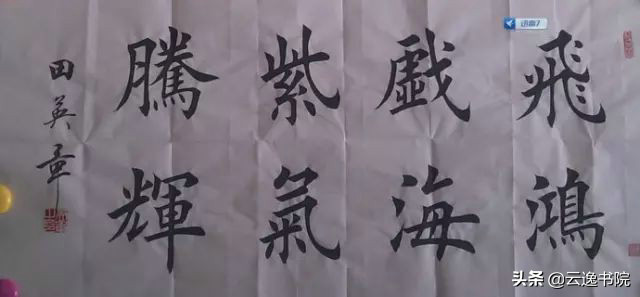 飛鴻
戯海
紫氣
騰輝
田英章
迅雷7
头条 @云逸书院